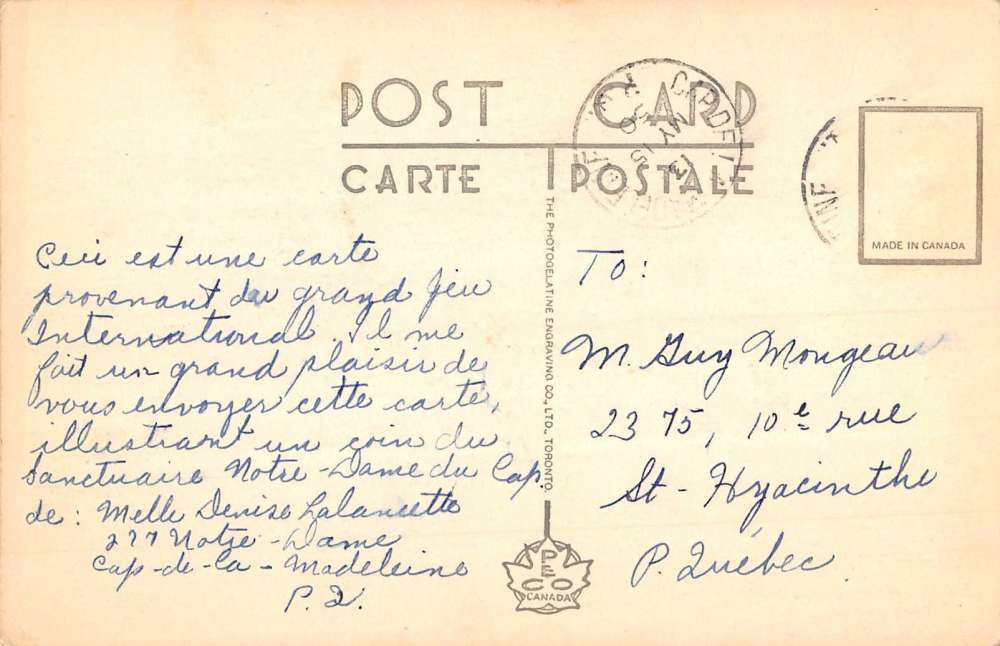 POST CARD
CARTE POSTALE
CAP DE LA MADELEINE
13
MY 15
50
P.Q.
INE
MADE IN CANADA
THE PHOTOGELATINE ENGRAVING CO., LTD., TORONTO.
Ceci est une carte
provenant du grand jeu
International. Il me
fait un grand plaisir de
vous envoyer cette carte,
illustrant un coin du
Sanctuaire Notre-Dame du Cap.
de: Melle Denise Lalancette
277 Notre-Dame
Cap-de-la-Madeleine
P.Q.
To:
M. Guy Mongeau
2375, 10e rue
St-Hyacinthe
P. Québec.
PECO
CANADA